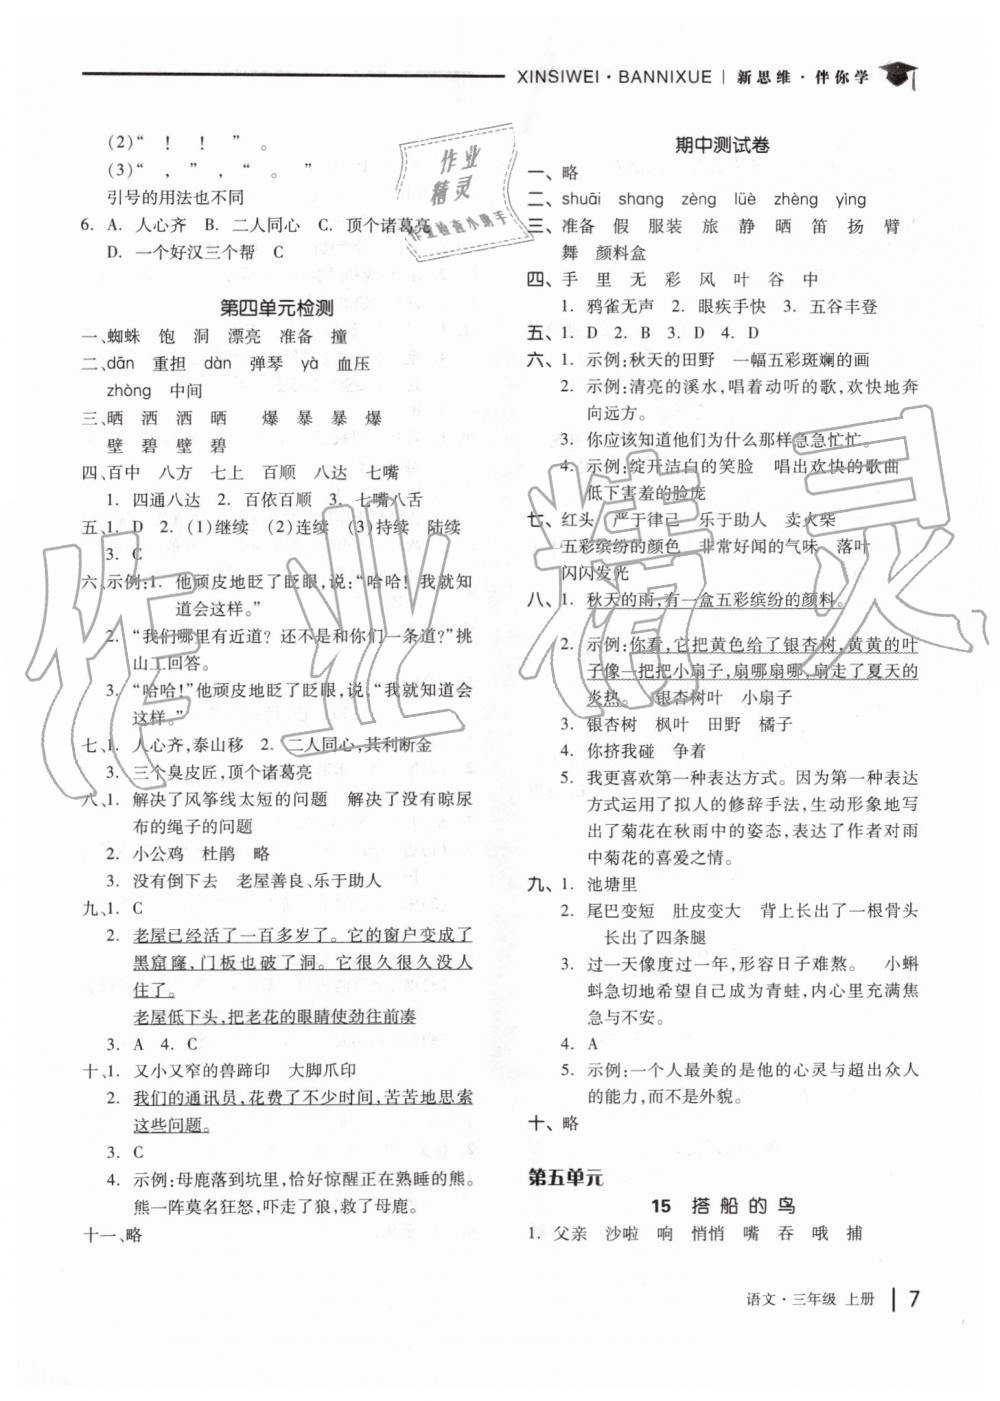 XINSIWEI·BANNIXUE | 新思维·伴你学
(2)“ ! ! ”。
(3)“ , ”, “ 。 ”
引号的用法也不同
6. A. 人心齐 B. 二人同心 C. 顶个诸葛亮
D. 一个好汉三个帮 C
第四单元检测
一、蜘蛛 饱 洞 漂亮 准备 撞
二、dān 重担 dàn 弹琴 yà 血压
zhòng 中间
三、晒 洒 洒 晒 爆 暴 暴 爆
壁 碧 壁 碧
四、百中 八方 七上 百顺 八达 七嘴
1. 四通八达 2. 百依百顺 3. 七嘴八舌
五、1. D 2. (1)继续 (2)连续 (3)持续 陆续
3. C
六、示例:1. 他顽皮地眨了眨眼,说:“哈哈! 我就知
道会这样。”
2. “我们哪里有近道? 还不是和你们一条道?”挑
山工回答。
3. “哈哈!”他顽皮地眨了眨眼,说,“我就知道会
这样。”
七、1. 人心齐,泰山移 2. 二人同心,其利断金
3. 三个臭皮匠,顶个诸葛亮
八、1. 解决了风筝线太短的问题 解决了没有晾尿
布的绳子的问题
2. 小公鸡 杜鹃 略
3. 没有倒下去 老屋善良、乐于助人
九、1. C
2. 老屋已经活了一百多岁了。它的窗户变成了
黑窟窿,门板也破了洞。它很久很久没人
住了。
老屋低下头,把老花的眼睛使劲往前凑
3. A 4. C
十、1. 又小又窄的兽蹄印 大脚爪印
2. 我们的通讯员,花费了不少时间,苦苦地思索
这些问题。
3. C
4. 示例:母鹿落到坑里,恰好惊醒正在熟睡的熊。
熊一阵莫名狂怒,吓走了狼,救了母鹿。
十一、略
期中测试卷
一、略
二、shuāi shang zèng lüè zhèng yìng
三、准备 假 服装 旅 静 晒 笛 扬 臂
舞 颜料盒
四、手 里 无 彩 风 叶 谷 中
1. 鸦雀无声 2. 眼疾手快 3. 五谷丰登
五、1. D 2. B 3. D 4. D
六、1. 示例:秋天的田野 一幅五彩斑斓的画
2. 示例:清亮的溪水,唱着动听的歌,欢快地奔
向远方。
3. 你应该知道他们为什么那样急急忙忙。
4. 示例:绽开洁白的笑脸 唱出欢快的歌曲
低下害羞的脸庞
七、红头 严于律己 乐于助人 卖火柴
五彩缤纷的颜色 非常好闻的气味 落叶
闪闪发光
八、1. 秋天的雨,有一盒五彩缤纷的颜料。
2. 示例:你看,它把黄色给了银杏树,黄黄的叶
子像一把把小扇子,扇哪扇哪,扇走了夏天的
炎热。 银杏树叶 小扇子
3. 银杏树 枫叶 田野 橘子
4. 你挤我碰 争着
5. 我更喜欢第一种表达方式。因为第一种表达
方式运用了拟人的修辞手法,生动形象地写
出了菊花在秋雨中的姿态,表达了作者对雨
中菊花的喜爱之情。
九、1. 池塘里
2. 尾巴变短 肚皮变大 背上长出了一根骨头
长出了四条腿
3. 过一天像度过一年,形容日子难熬。 小蝌
蚪急切地希望自己成为青蛙,内心里充满焦
急与不安。
4. A
5. 示例:一个人最美的是他的心灵与超出众人
的能力,而不是外貌。
十、略
第五单元
15 搭船的鸟
1. 父亲 沙啦 响 悄悄 嘴 吞 哦 捕
语文·三年级 上册 | 7
作业
精灵
作业检查小助手
作业精灵